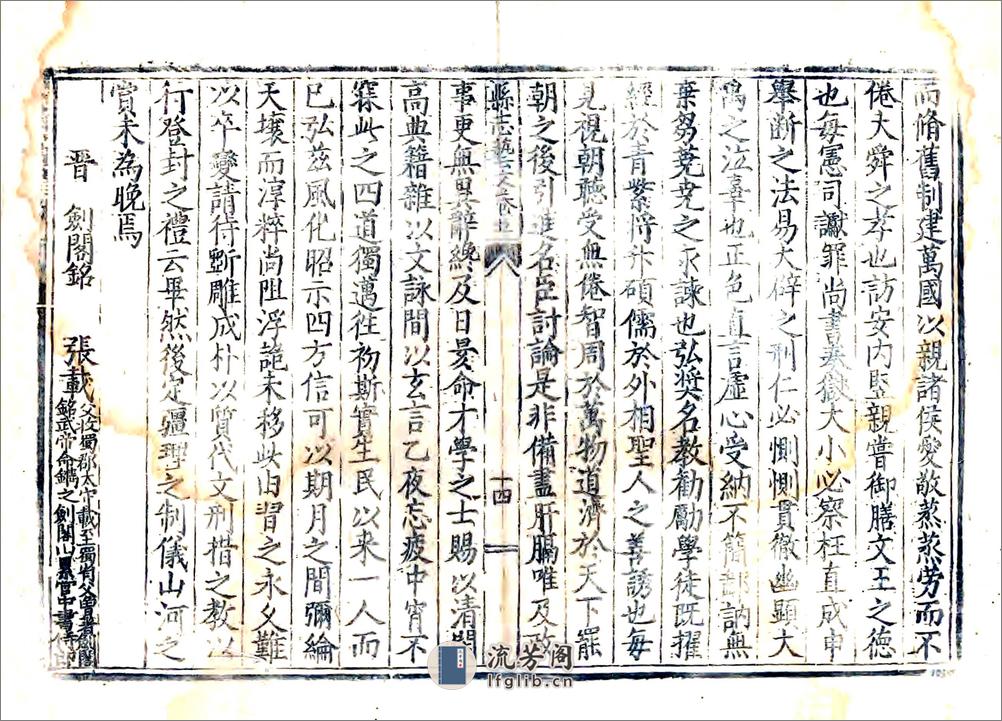 而脩舊制建萬國以親諸侯愛敬蒸蒸勞而不
倦大舜之孝也訪安內豎親嘗御膳文王之德
也每憲司讞罪尚書奏獄大小必察枉直咸申
舉斷之法易大辟之刑仁必惻惻貫徹幽顯大
禹之泣辜也正色直言虛心受納不簡鄙訥無
棄芻蕘堯之求諫也弘獎名教勸勵學徒既擢
經於青紫將升碩儒於外相聖人之善誘也每
見視朝聽受無倦智周於萬物道濟於天下罷
朝之後引進名臣討論是非備盡肝膈唯及政
縣志藝文卷五 十四
事更無異辭纔及日昃命才學之士賜以清閒
高典籍雜以文詠間以玄言乙夜忘疲中宵不
寐此之四道獨邁往初斯實生民以來一人而
已弘茲風化昭示四方信可以期月之間彌綸
天壤而淳粹尚阻浮詭未移此由習之永久難
以卒變請待斲雕成朴以質代文刑措之教以
行登封之禮云畢然後定疆理之制儀山河之
賞未為晚焉
晉 劍閣銘 張載
父收蜀郡太守載至蜀省父曾著劍閣
銘武帝命鐫之劍閣山累官中書侍郎
流芳阁
lfglib.cn